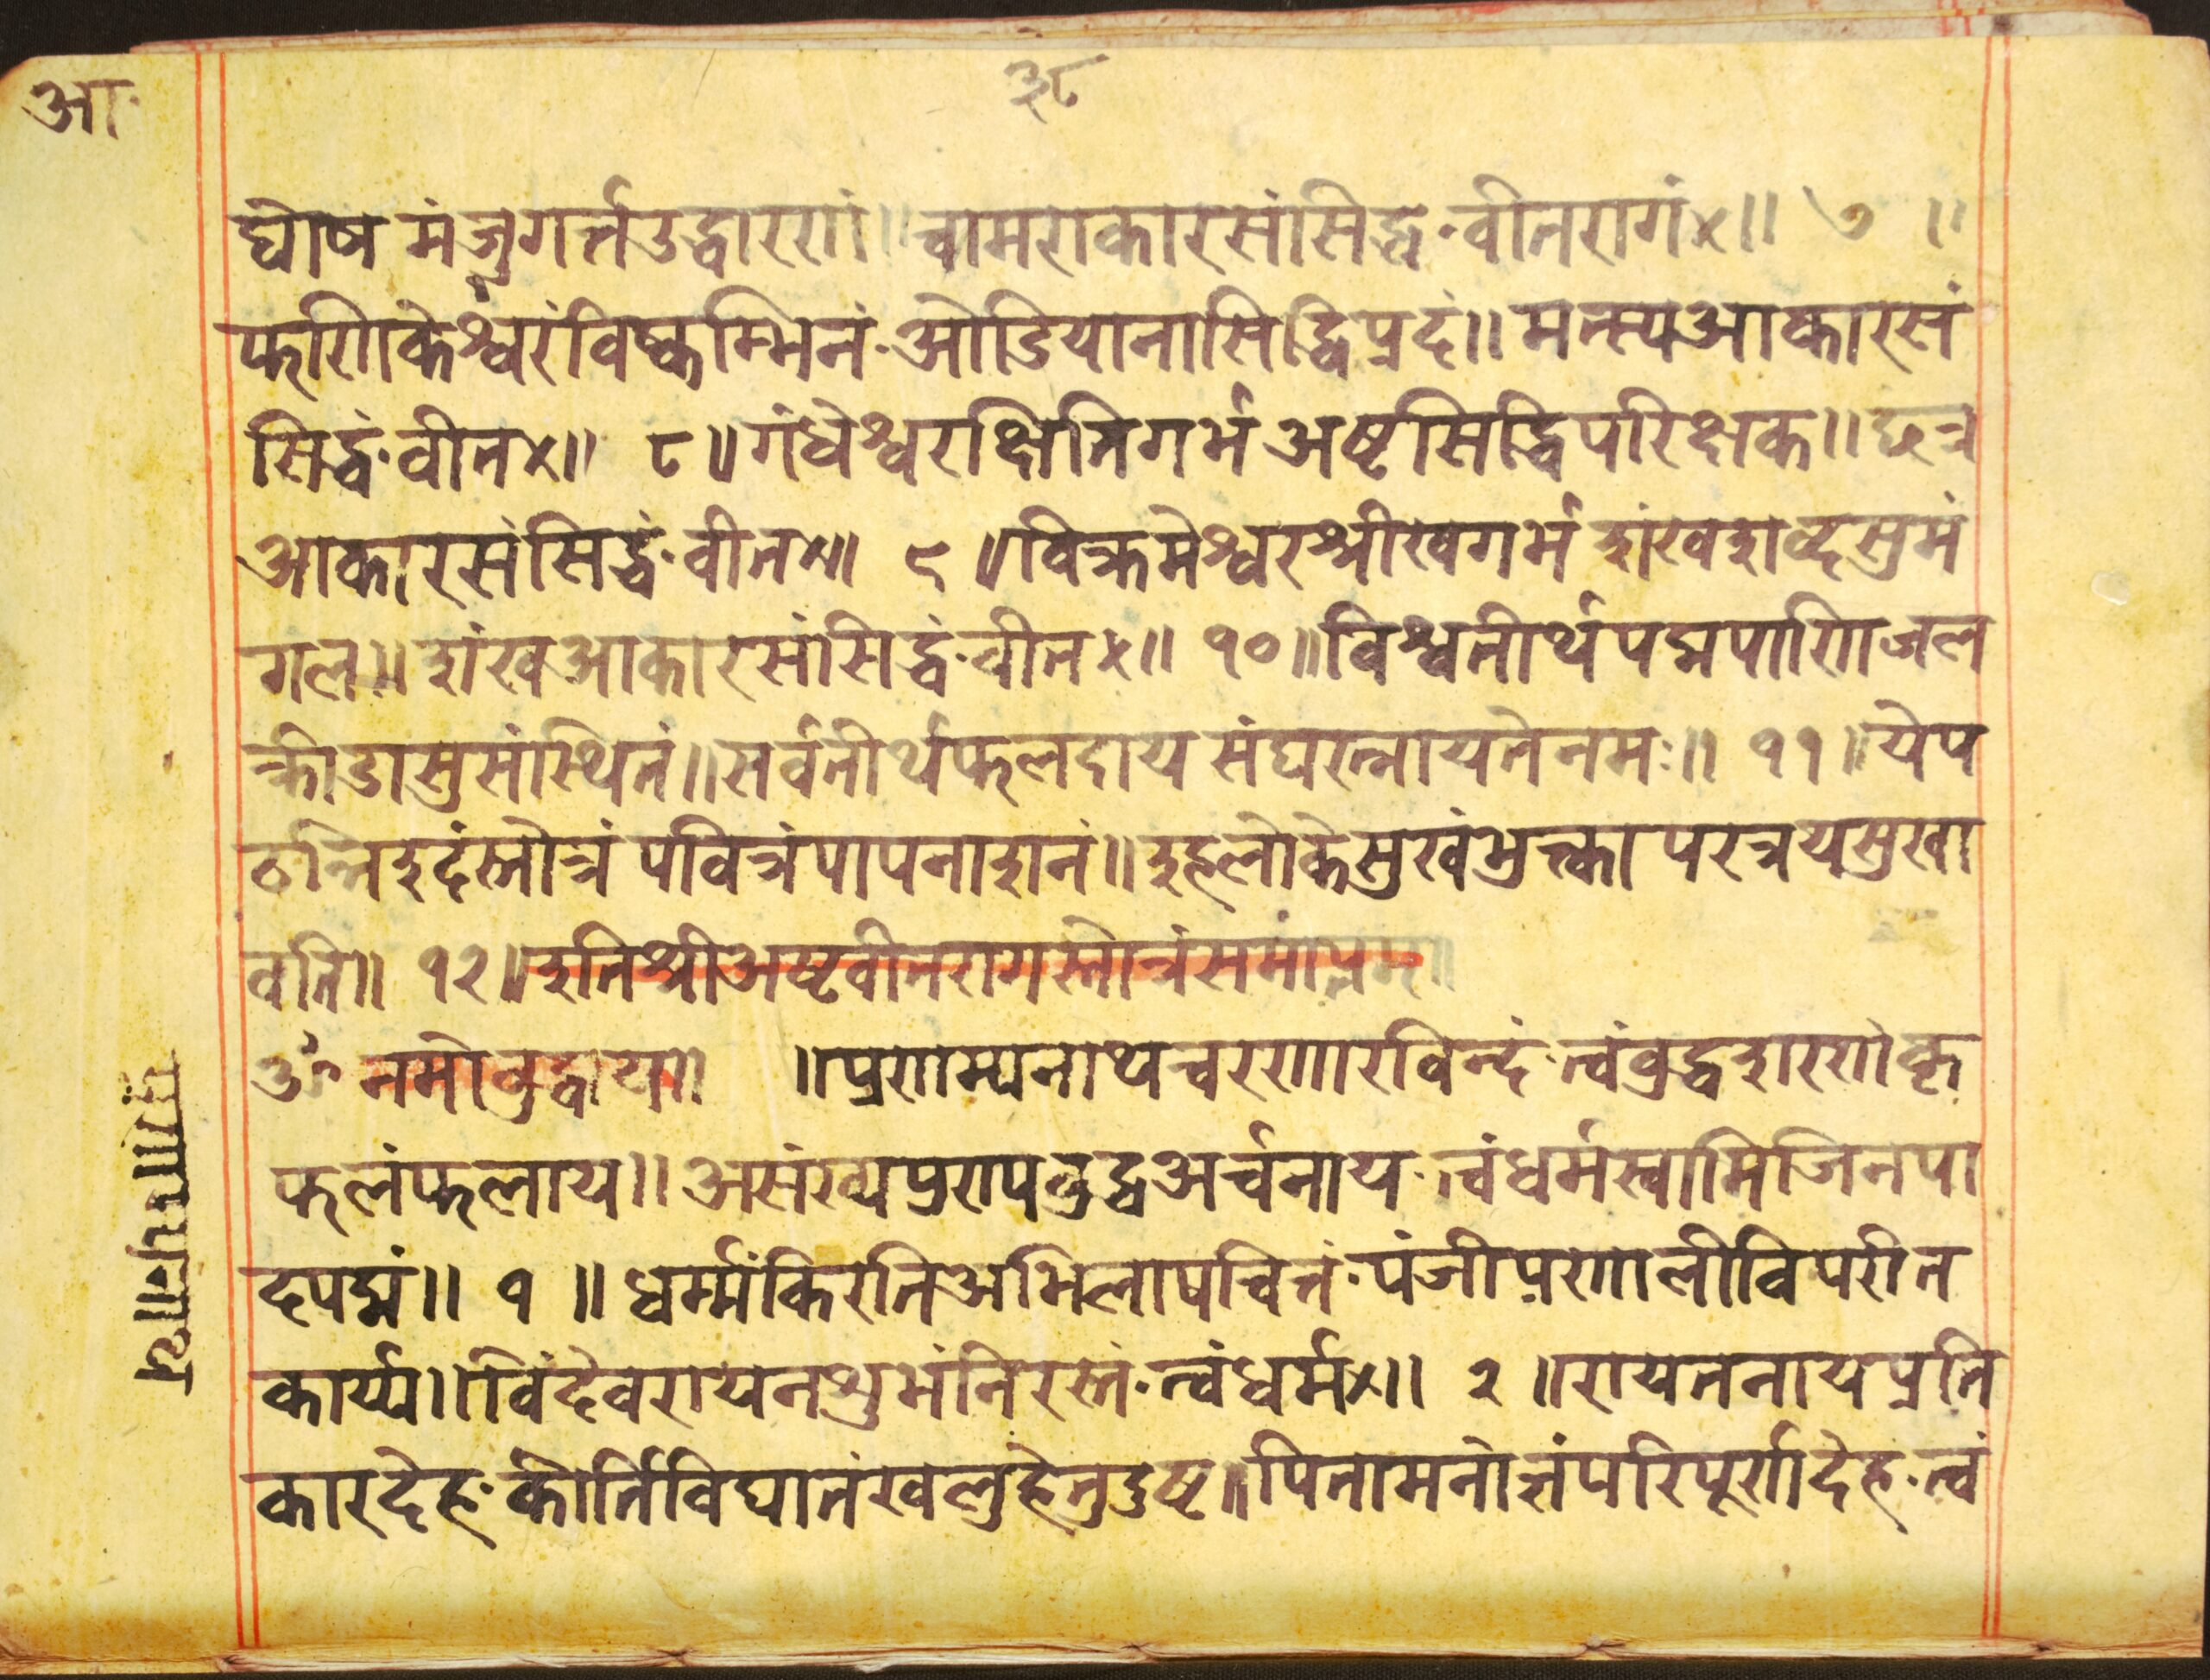 आ
३८
घोष मंजुगर्त्तउद्धारणं॥चामराकारसंसिद्धं·वीतरागं×॥ ७ ॥
फणिकेश्वरंविष्कम्भिनं·ओडियानासिद्धिप्रदं॥मत्स्यआकारसं
सिद्धं·वीत×॥ ८॥गंधेश्वरक्षितिगर्भअष्टसिद्धिपरिक्षक॥छत्र
आकारसंसिद्धं·वीत×॥ ९॥विक्रमेश्वरश्रीखगर्भ शंखशब्दसुमं
गल॥शंखआकारसंसिद्धं·वीत×॥ १०॥विश्वतीर्थपद्मपाणिजल
क्रीडासुसंस्थितं॥सर्वतीर्थफलदाय संघरत्नायतेनमः॥ ११॥येप
ठन्तिइदंस्तोत्रं पवित्रंपापनाशनं॥इहलोकेसुखंभुक्त्वा परत्रयसुखा
वति॥ १२॥इतिश्रीअष्टवीतरागस्तोत्रंसमाप्तम्॥
ॐ नमोबुद्धाय॥ ॥प्रणम्यनाथचरणारविन्दं·त्वंबुद्धशरणेकृ
फलंफलाय॥असंख्यपुरापबुद्धअर्चनाय·त्वंधर्मस्वामिजिनपा
दपद्मं॥ १ ॥धर्म्मंकिरतिअभिलाषचित्तं·पंजीप्रणालीविपरीत
कार्य्य॥विंदेवरायनशुभंनिरस्तं·त्वंधर्म×॥ २ ॥रायतनायप्रति
कारदेह·कीर्तिविघातंखलुहेतुदुष्ट॥पितामनोत्तंपरिपूर्णदेह·त्वं
प्रणम्यनाथ